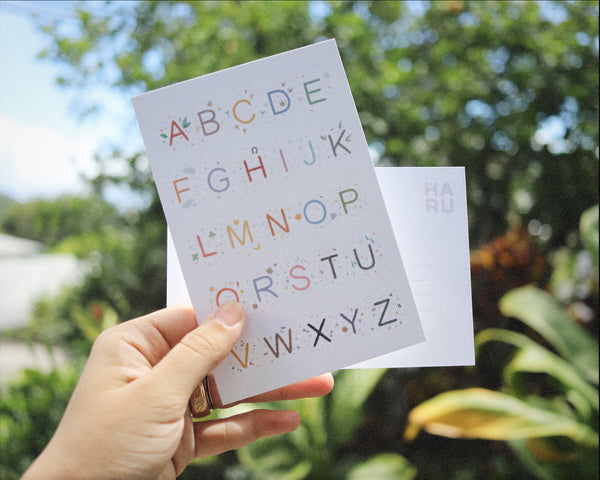 A B C D E
F G H I J K
L M N O P
Q R S T U
V W X Y Z
HA
RU